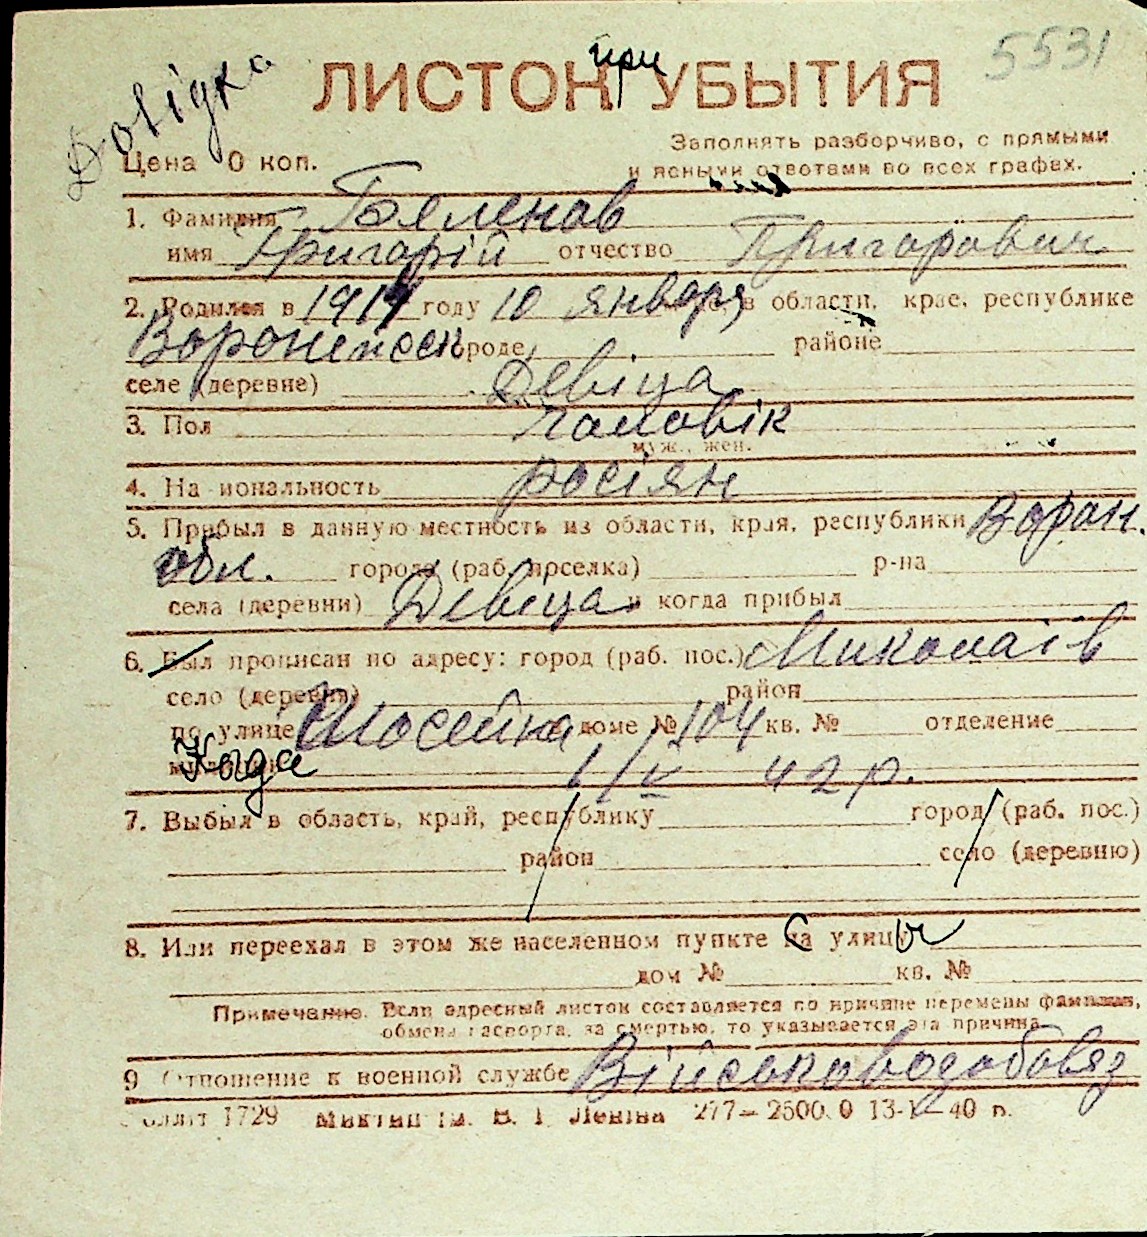 5531
при
ЛИСТОК УБЫТИЯ
Довідка
Цена 0 коп.
Заполнять разборчиво, с прямыми
и ясными ответами во всех графах.
1. Фамилия Бяленов
имя Григорій отчество Григорович
2. Родился в 1914 году 10 января, в области, крае, республике
Воронежск городе районе
селе (деревне) Девіца
3. Пол чаловік
муж., жен.
4. На иональность росіян
5. Прибыл в данную местность из области, края, республики Ворон.
обл. города (раб. поселка) р-на
села (деревни) Девіца и когда прибыл
6. Был прописан по адресу: город (раб. пос.) Миколаїв
село (деревня) район
по улице Шосейна доме № 104 кв. № отделение
Када 1/V 42 р.
7. Выбыл в область, край, республику город (раб. пос.)
район село (деревню)
8. Или переехал в этом же населенном пункте на улицу
дом № кв. №
Примечание. Если адресный листок составляется по причине перемены фамилии,
обмена паспорта, за смертью, то указывается эта причина
9 Отношение к военной службе Військоводобовяз
1729 Миктип ім. В. І. Леніна 277—2500.0 13-V—40 р.